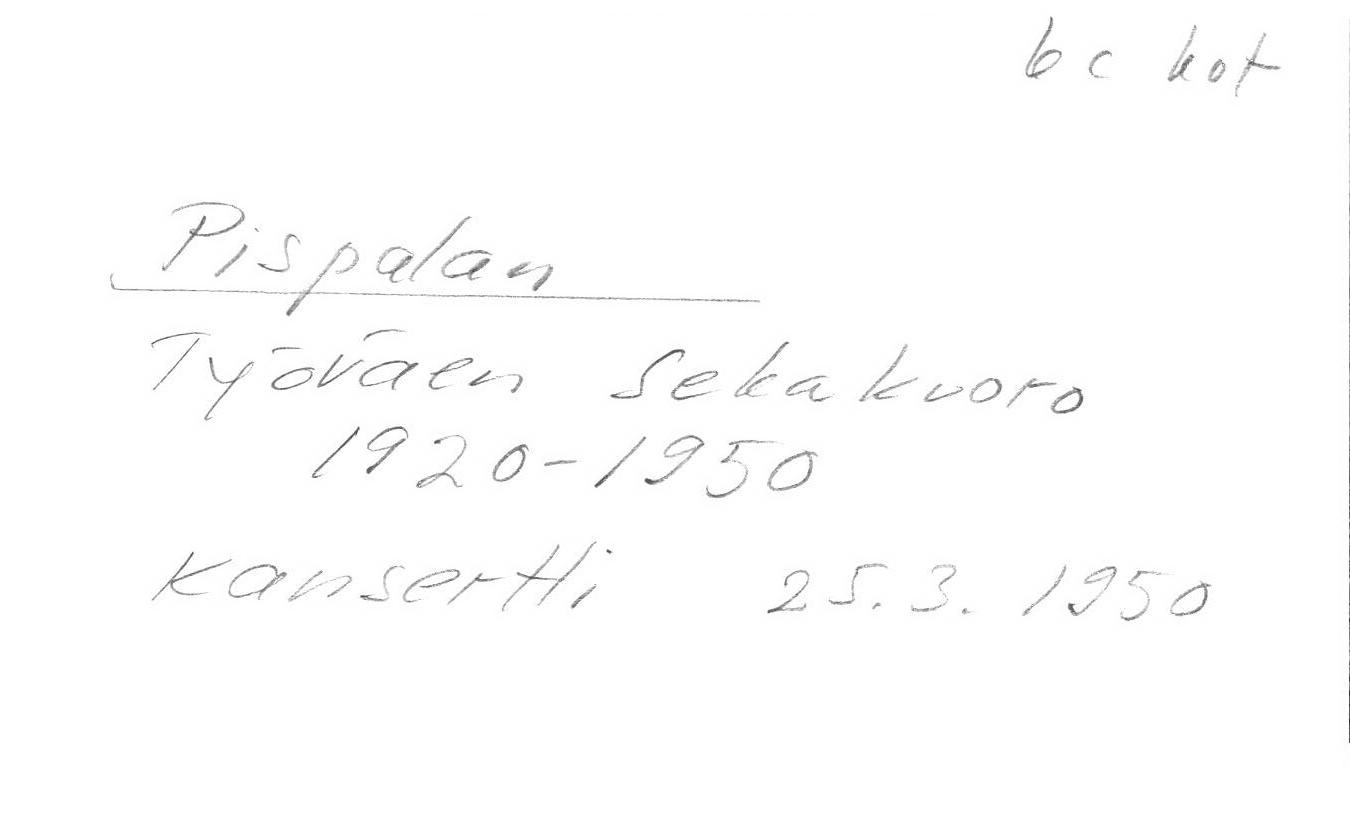 6c kot
Pispalan
Työväen Sekakuoro
1920-1950
Kansertti 25.3.1950